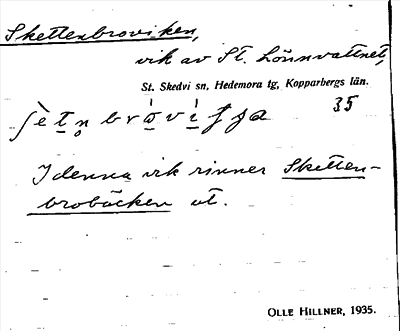 Skettenbroviken,
vik av St. Lönnvattnet,
St. Skedvi sn, Hedemora tg, Kopparbergs län.
35
I denna vik rinner Sketten-
brobäcken ut.
OLLE HILLNER, 1935.